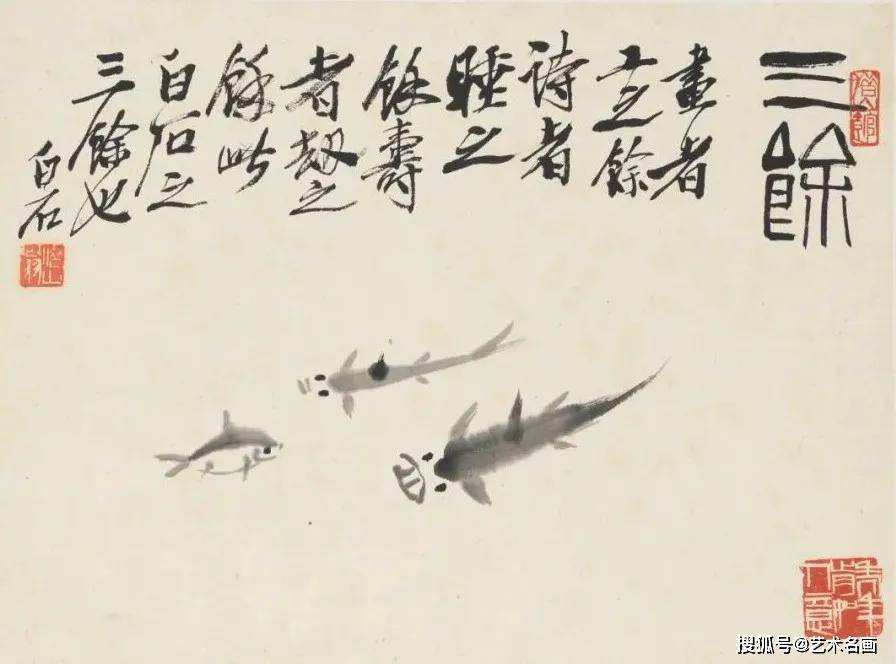 三餘
畫者
工之餘
詩者
睡之
餘壽
者劫之
餘此
白石之
三餘也
白石
搜狐号@艺术名画